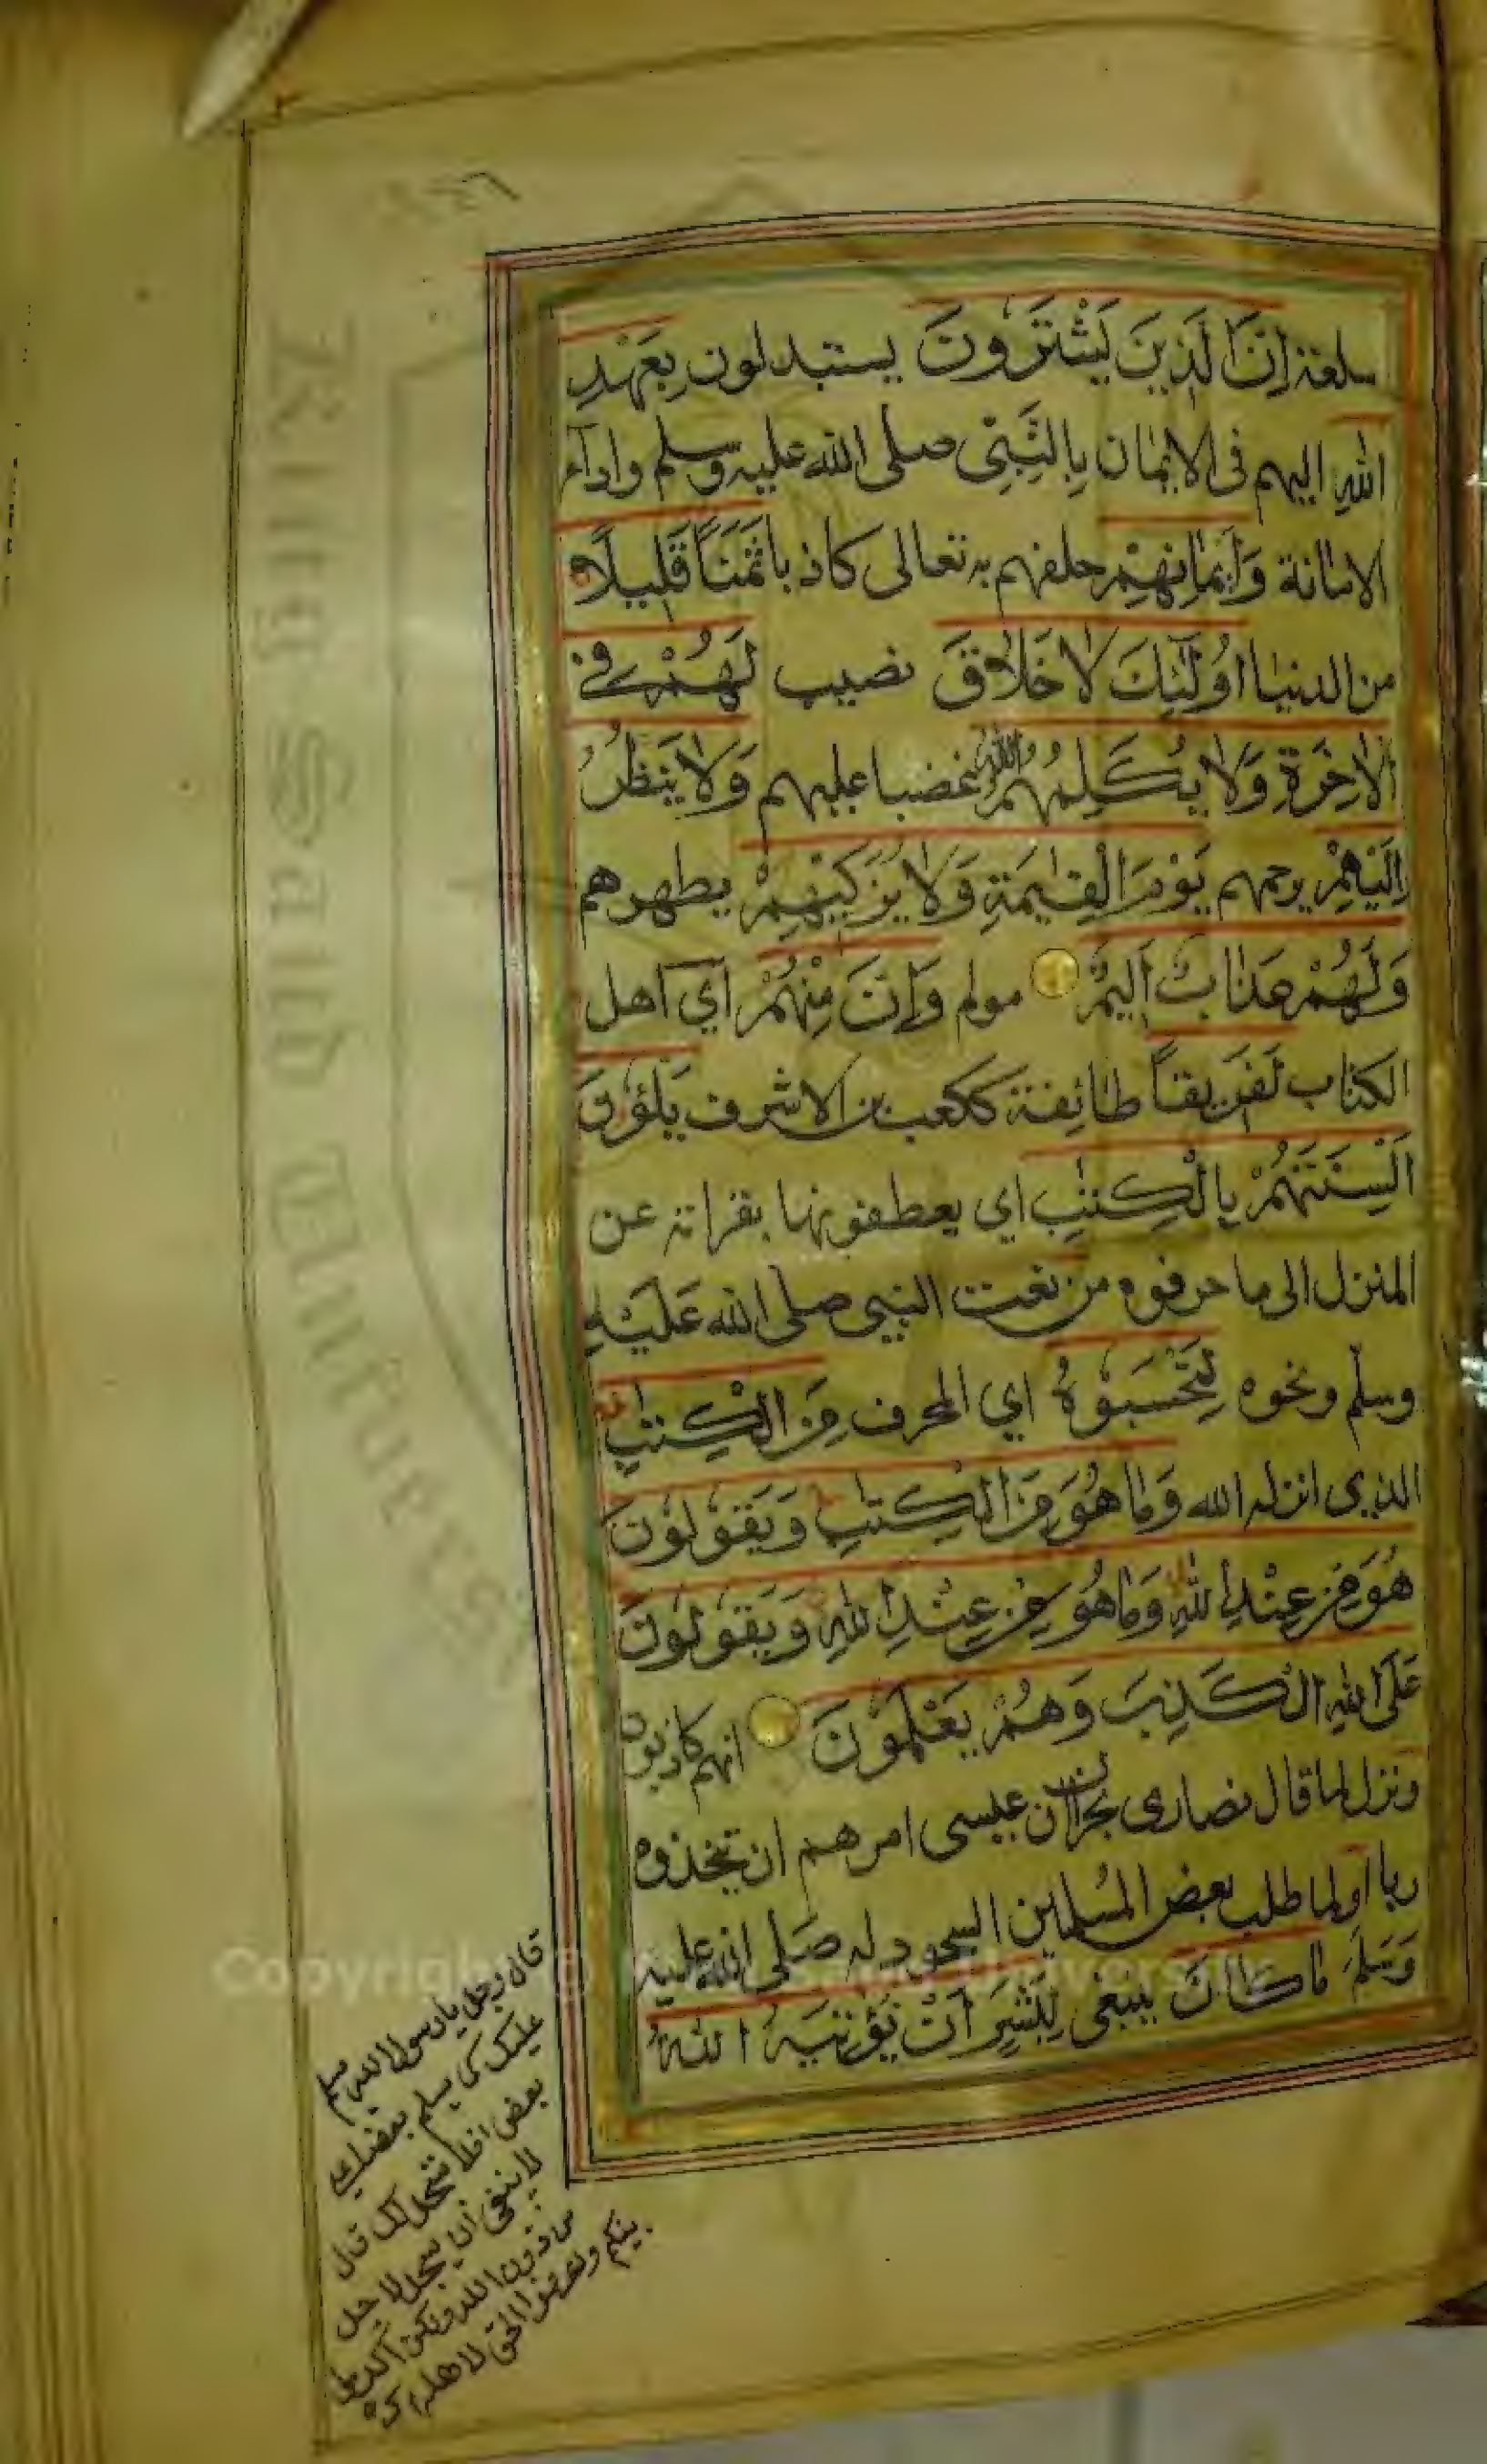 سلعة اِنَّ الَّذِينَ يَشْتَرُونَ يستبدلون بِعَهْدِ
اللهِ اليهم في الايمان بِالنَّبِيِّ صلى الله عليه وسلم واداء
الامانة وَاَيْمَانِهِمْ حلفهم به تعالى كاذبا ثَمَنًا قَلِيلًا
من الدنيا اُولٰٓئِكَ لَا خَلَاقَ نصيب لَهُمْ فِي
الْاٰخِرَةِ وَلَا يُكَلِّمُهُمُ اللهُ غضبا عليهم وَلَا يَنْظُرُ
اِلَيْهِمْ يرحمهم يَوْمَ الْقِيٰمَةِ وَلَا يُزَكِّيهِمْ يطهرهم
وَلَهُمْ عَذَابٌ اَلِيمٌ مولم وَاِنَّ مِنْهُمْ اَي اهل
الكتاب لَفَرِيقًا طائفة ككعب بن الاشرف يَلْوٗنَ
اَلْسِنَتَهُمْ بِالْكِتٰبِ اي يعطفونها بقراته عن
المنزل الى ما حرفوه من نعت النبي صلى الله عَلَيْهِ
وسلّم ونحوه لِتَحْسَبُوْهُ اي المحرف مِنَ الْكِتٰبِ
الذي انزله الله وَمَا هُوَ مِنَ الْكِتٰبِ وَيَقُوْلُوْنَ
هُوَ مِنْ عِنْدِ اللهِ وَمَا هُوَ مِنْ عِنْدِ اللهِ وَيَقُوْلُوْنَ
عَلَى اللهِ الْكَذِبَ وَهُمْ يَعْلَمُوْنَ انهم كاذبون
ونزل لما قال نصارى نجران ان عيسى امرهم ان يتخذوه
ربا او لما طلب بعض المُسلمين السجود له صَلى الله عليه
وَسَلَّمَ مَا كَانَ ينبغي لِبَشَرٍ اَنْ يُؤْتِيَهُ اللهُ
قال رجل يا رسول الله نسلم
عليك كما يسلم بعضنا على
بعض افلا نسجد لك قال
لا ينبغي ان يسجد لاحد
من دون الله ولكن اكرموا
نبيكم واعرفوا الحق لاهله
King Saud University
Copyright © King Saud University